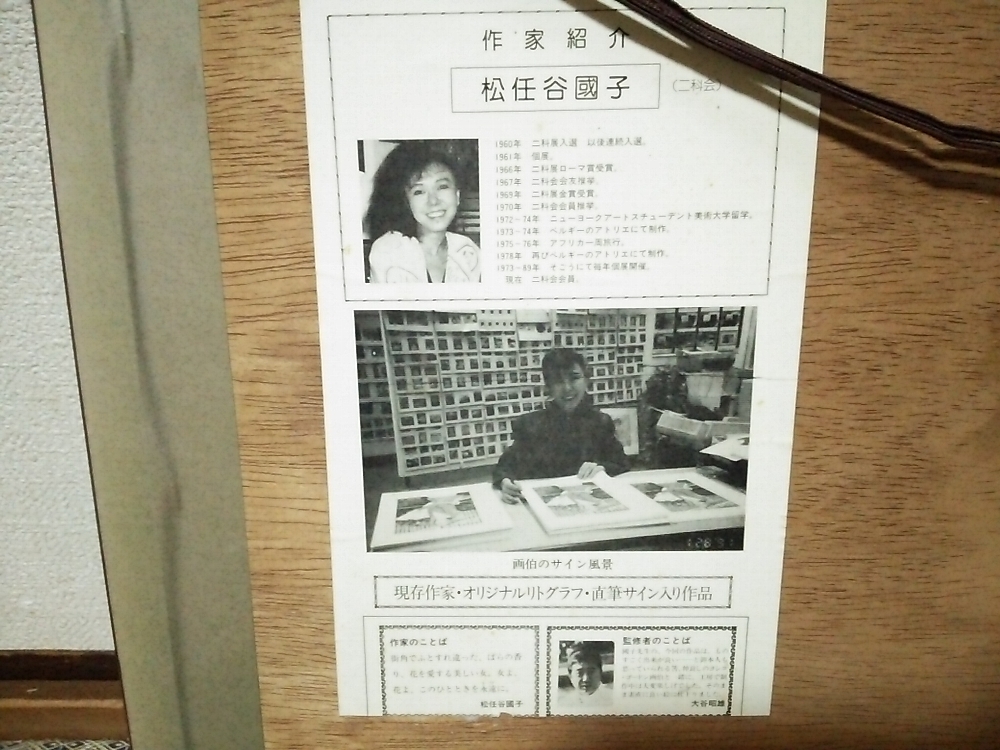 作家紹介
松任谷國子
(二科会)
1960年 二科展入選 以後連続入選。
1961年 個展。
1966年 二科展ローマ賞受賞。
1967年 二科会会友推挙。
1969年 二科展金賞受賞。
1970年 二科会会員推挙。
1972~74年 ニューヨークアートスチューデント美術大学留学。
1973~74年 ベルギーのアトリエにて制作。
1975~76年 アフリカ一周旅行。
1978年 再びベルギーのアトリエにて制作。
1973~89年 そごうにて毎年個展開催。
現在 二科会会員。
画伯のサイン風景
現存作家・オリジナルリトグラフ・直筆サイン入り作品
作家のことば
街角でふとすれ違った、ばらの香
り。花を愛する美しい女。女よ、
花よ、このひとときを永遠に。
松任谷國子
監修者のことば
大谷昭雄